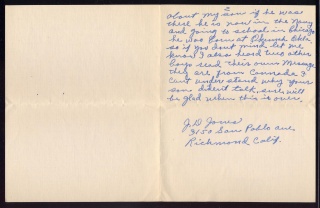 about my son if he was
there he is now in the Navy
and going to school in Chicago
he was born at Okmund Okla.
so if you don't mind let me
know. I also heard two other
boys send their own Message
they are from Comrade. I
Can't understand why your
son didn't talk, sure will
be glad when this is over.
J. D. Jones
3150 San Pablo ave.
Richmond Calif.